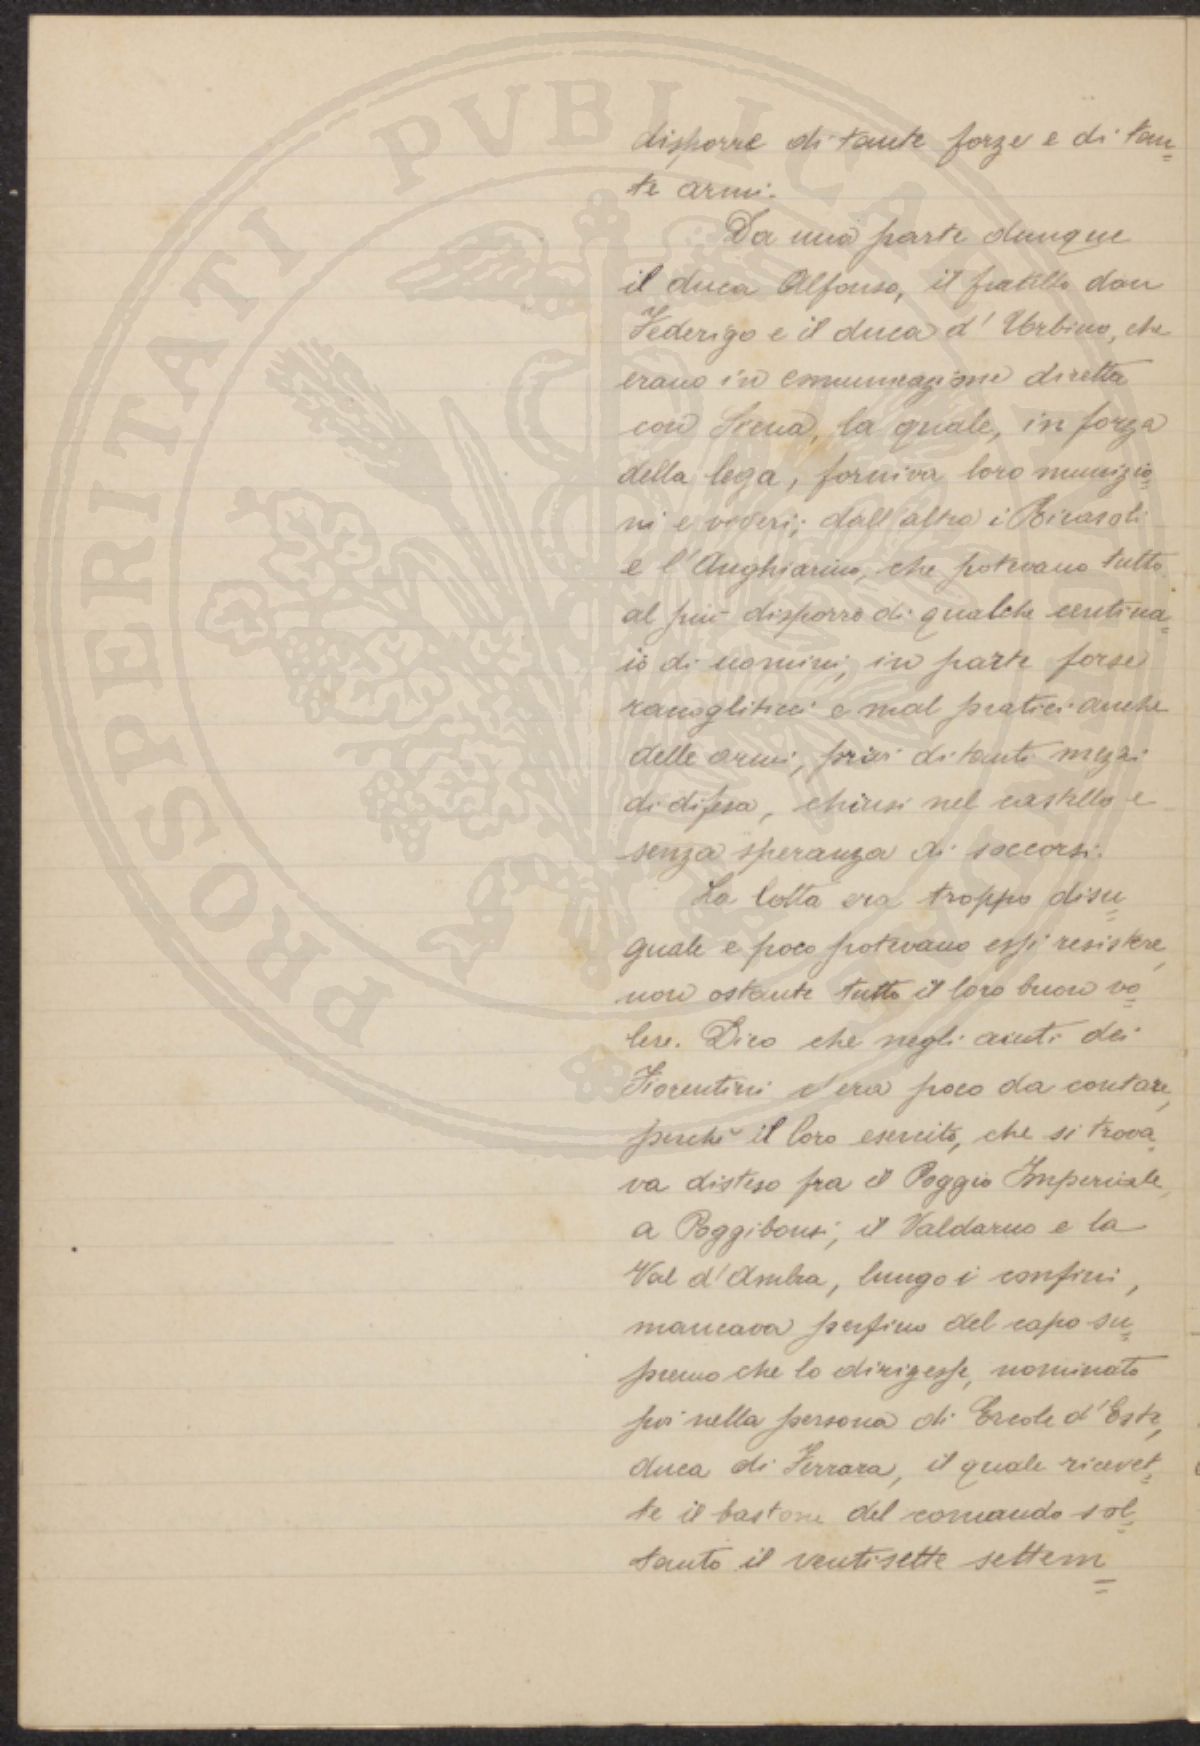 disporre di tante forze e di tan=
te armi.
Da una parte dunque
il duca Alfonso, il fratello don
Federigo e il duca d'Urbino, che
erano in comunicazione diretta
con Siena, la quale, in forza
della lega, forniva loro munizio=
ni e viveri; dall'altra i Ricasoli
e l'Anghiarino, che potevano tutto
al più disporre di qualche centina=
io di uomini, in parte forse
raccogliticci e mal pratici anche
delle armi, privi di tanti mezzi
di difesa, chiusi nel castello e
senza speranza di soccorsi.
La lotta era troppo disu=
guale e poco potevano essi resistere,
non ostante tutto il loro buon vo=
lere. Dico che negli aiuti dei
Fiorentini v'era poco da contare,
perché il loro esercito, che si trova=
va disteso fra il Poggio Imperiale,
a Poggibonsi, il Valdarno e la
Val d'Ambra, lungo i confini,
mancava perfino del capo su=
premo che lo dirigesse, nominato
poi nella persona di Ercole d'Este,
duca di Ferrara, il quale ricevet=
te il bastone del comando sol=
tanto il ventisette settem=
PROSPERITATI PVBLICAE